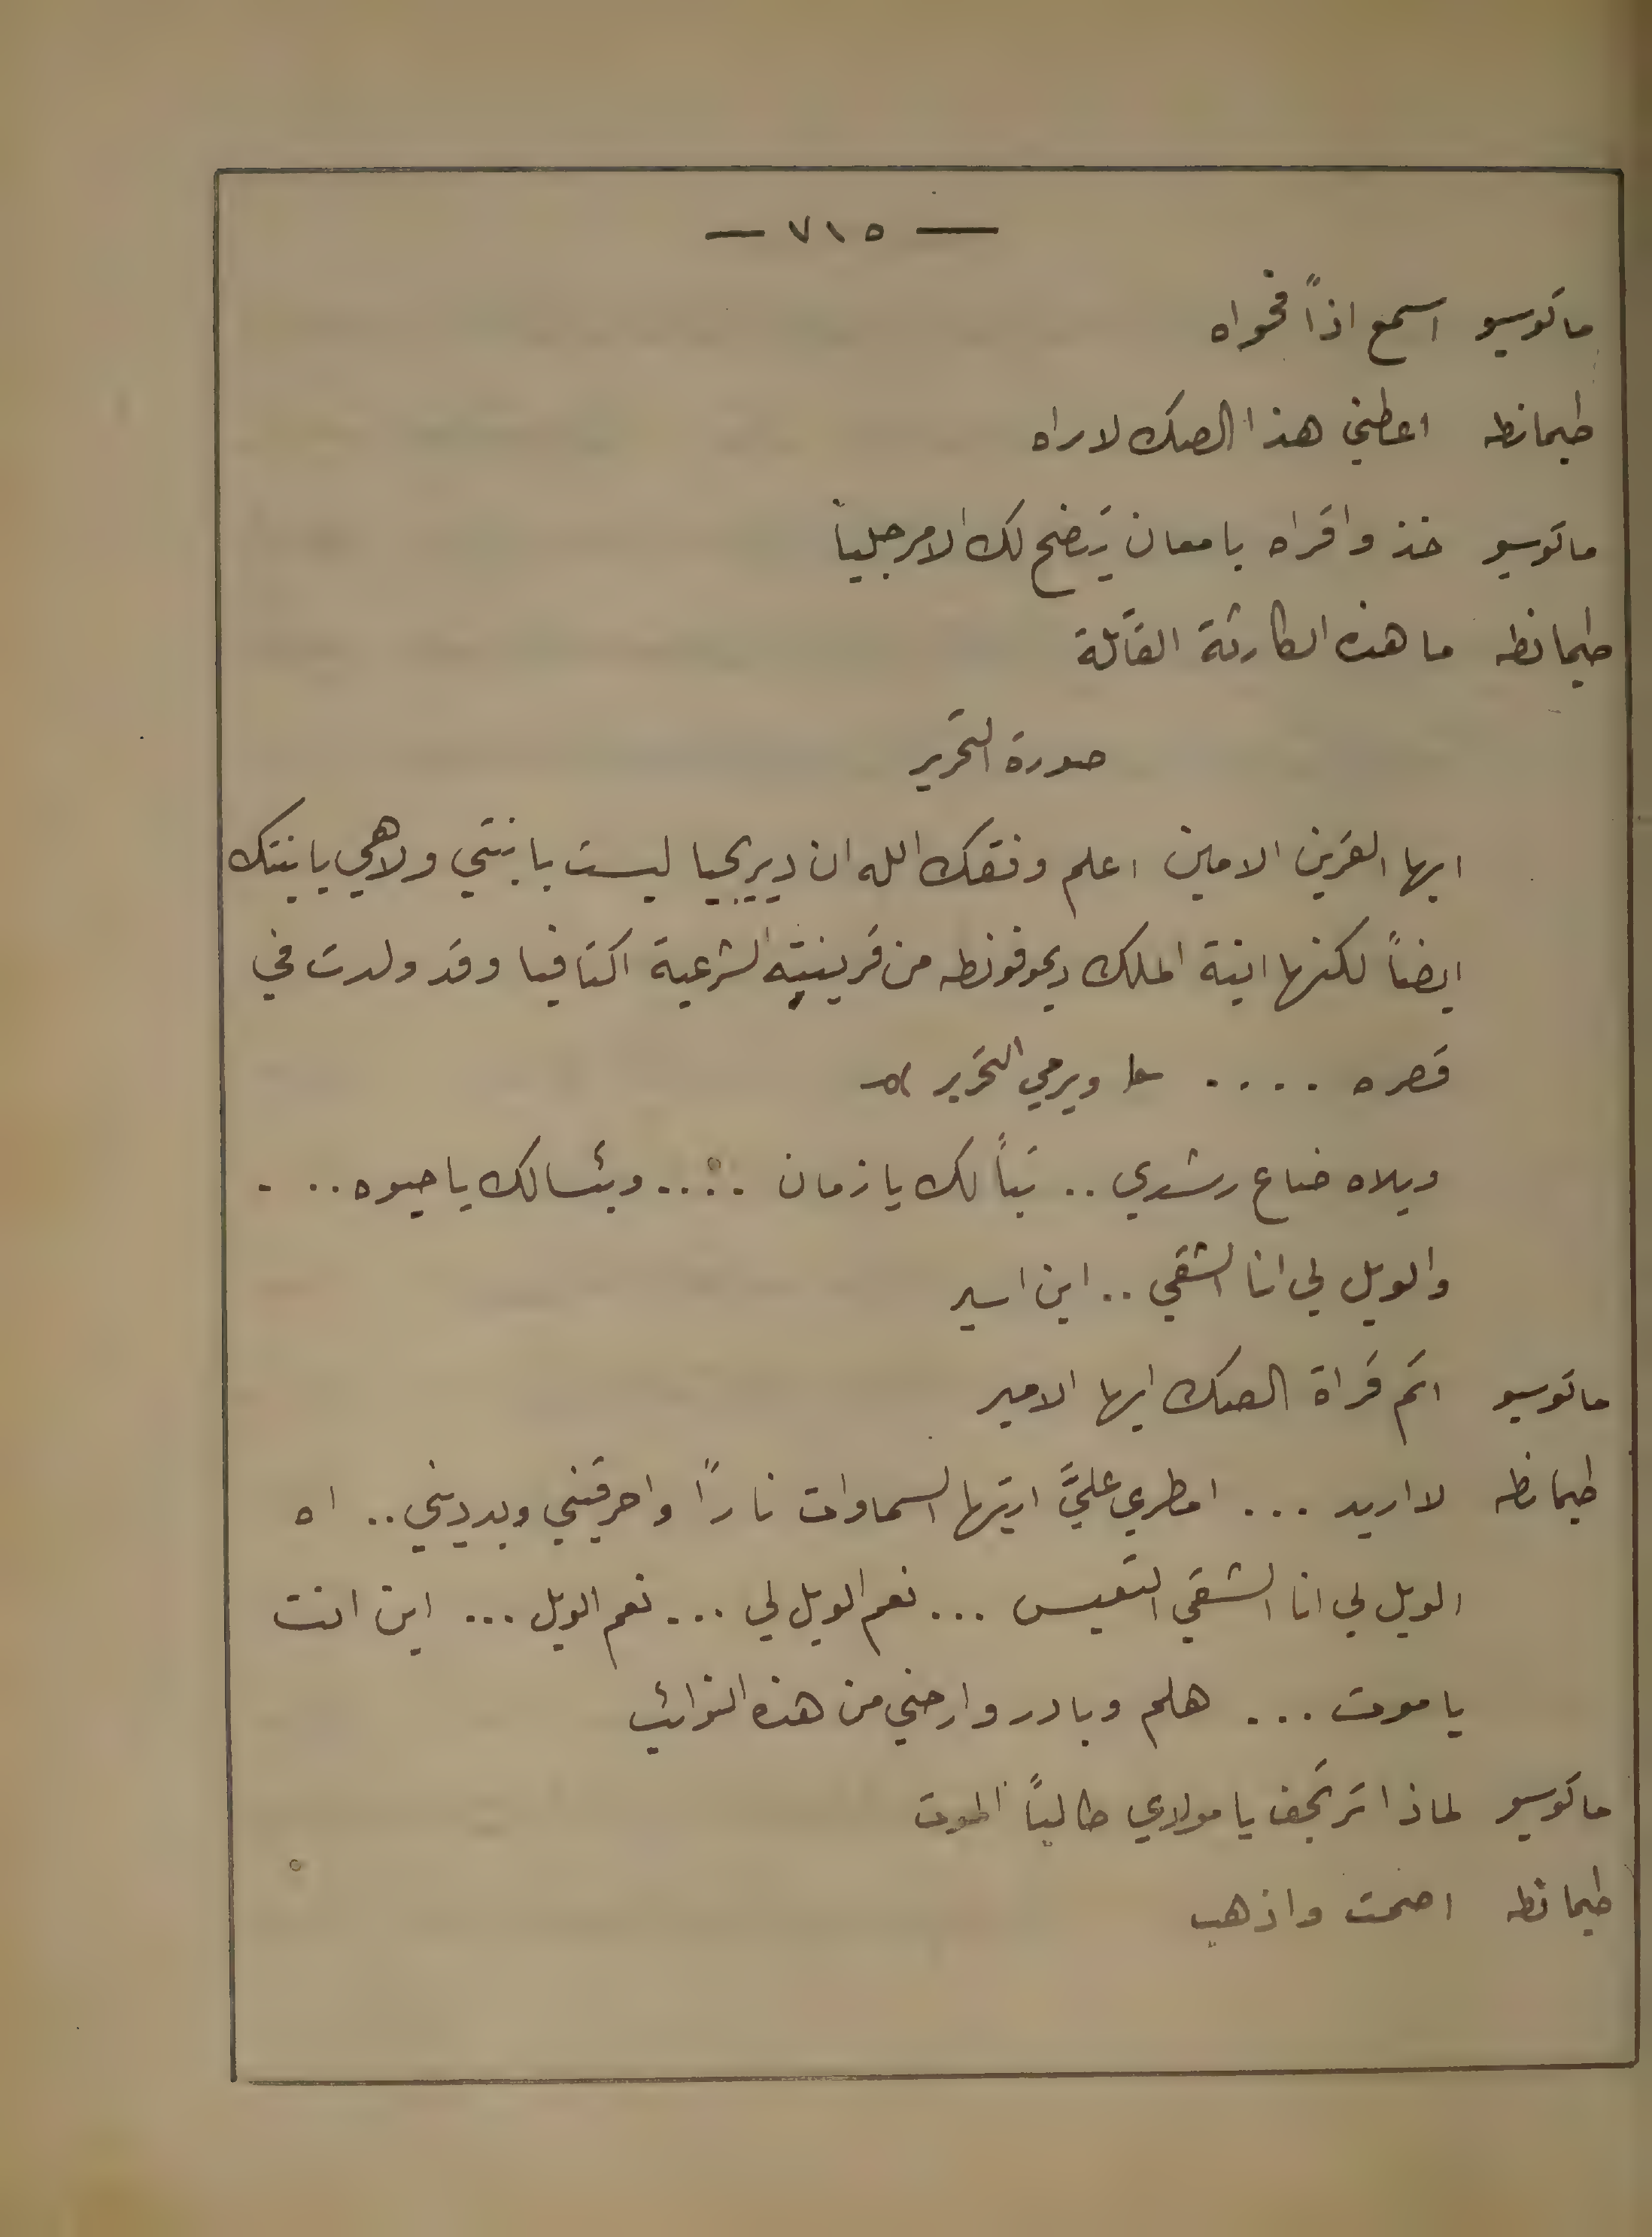 — ٧١٥ —
ماتوسيو اسمع اذاً فحواه
طيمانطه اعطني هذا الصك لاراه
ماتوسيو خذ واقراه بامعان يتضح لك الامر جلياً
طيمانطه ما هذه الكارثة القاتلة
صورة التحرير
ايها القرين الامين اعلم وفقك الله ان ديريجيا ليست بابنتي ولا هي بابنتك
ايضاً لكنها ابنة الملك ديموفونطه من قرينته الشرعية اكتافيا وقد ولدت في
قصره .... ويرمي التحرير
ويلاه ضاع رشدي .. تباً لك يا زمان .... وبئسا لك يا حيوه ...
والويل لي انا الشقي .. اين اسير
ماتوسيو اتم قراة الصك ايها الامير
طيمانطه لا اريد ... امطري عليَّ ايتها السماوات ناراً واحرقيني وبدديني .. اه
الويل لي انا الشقي التعيس ... نعم الويل لي ... نعم الويل ... اين انت
يا موت ... هلم وبادر وارحني من هذه النوائب
ماتوسيو لماذا ترتجف يا مولاي طالباً الموت
طيمانطه اصمت واذهب